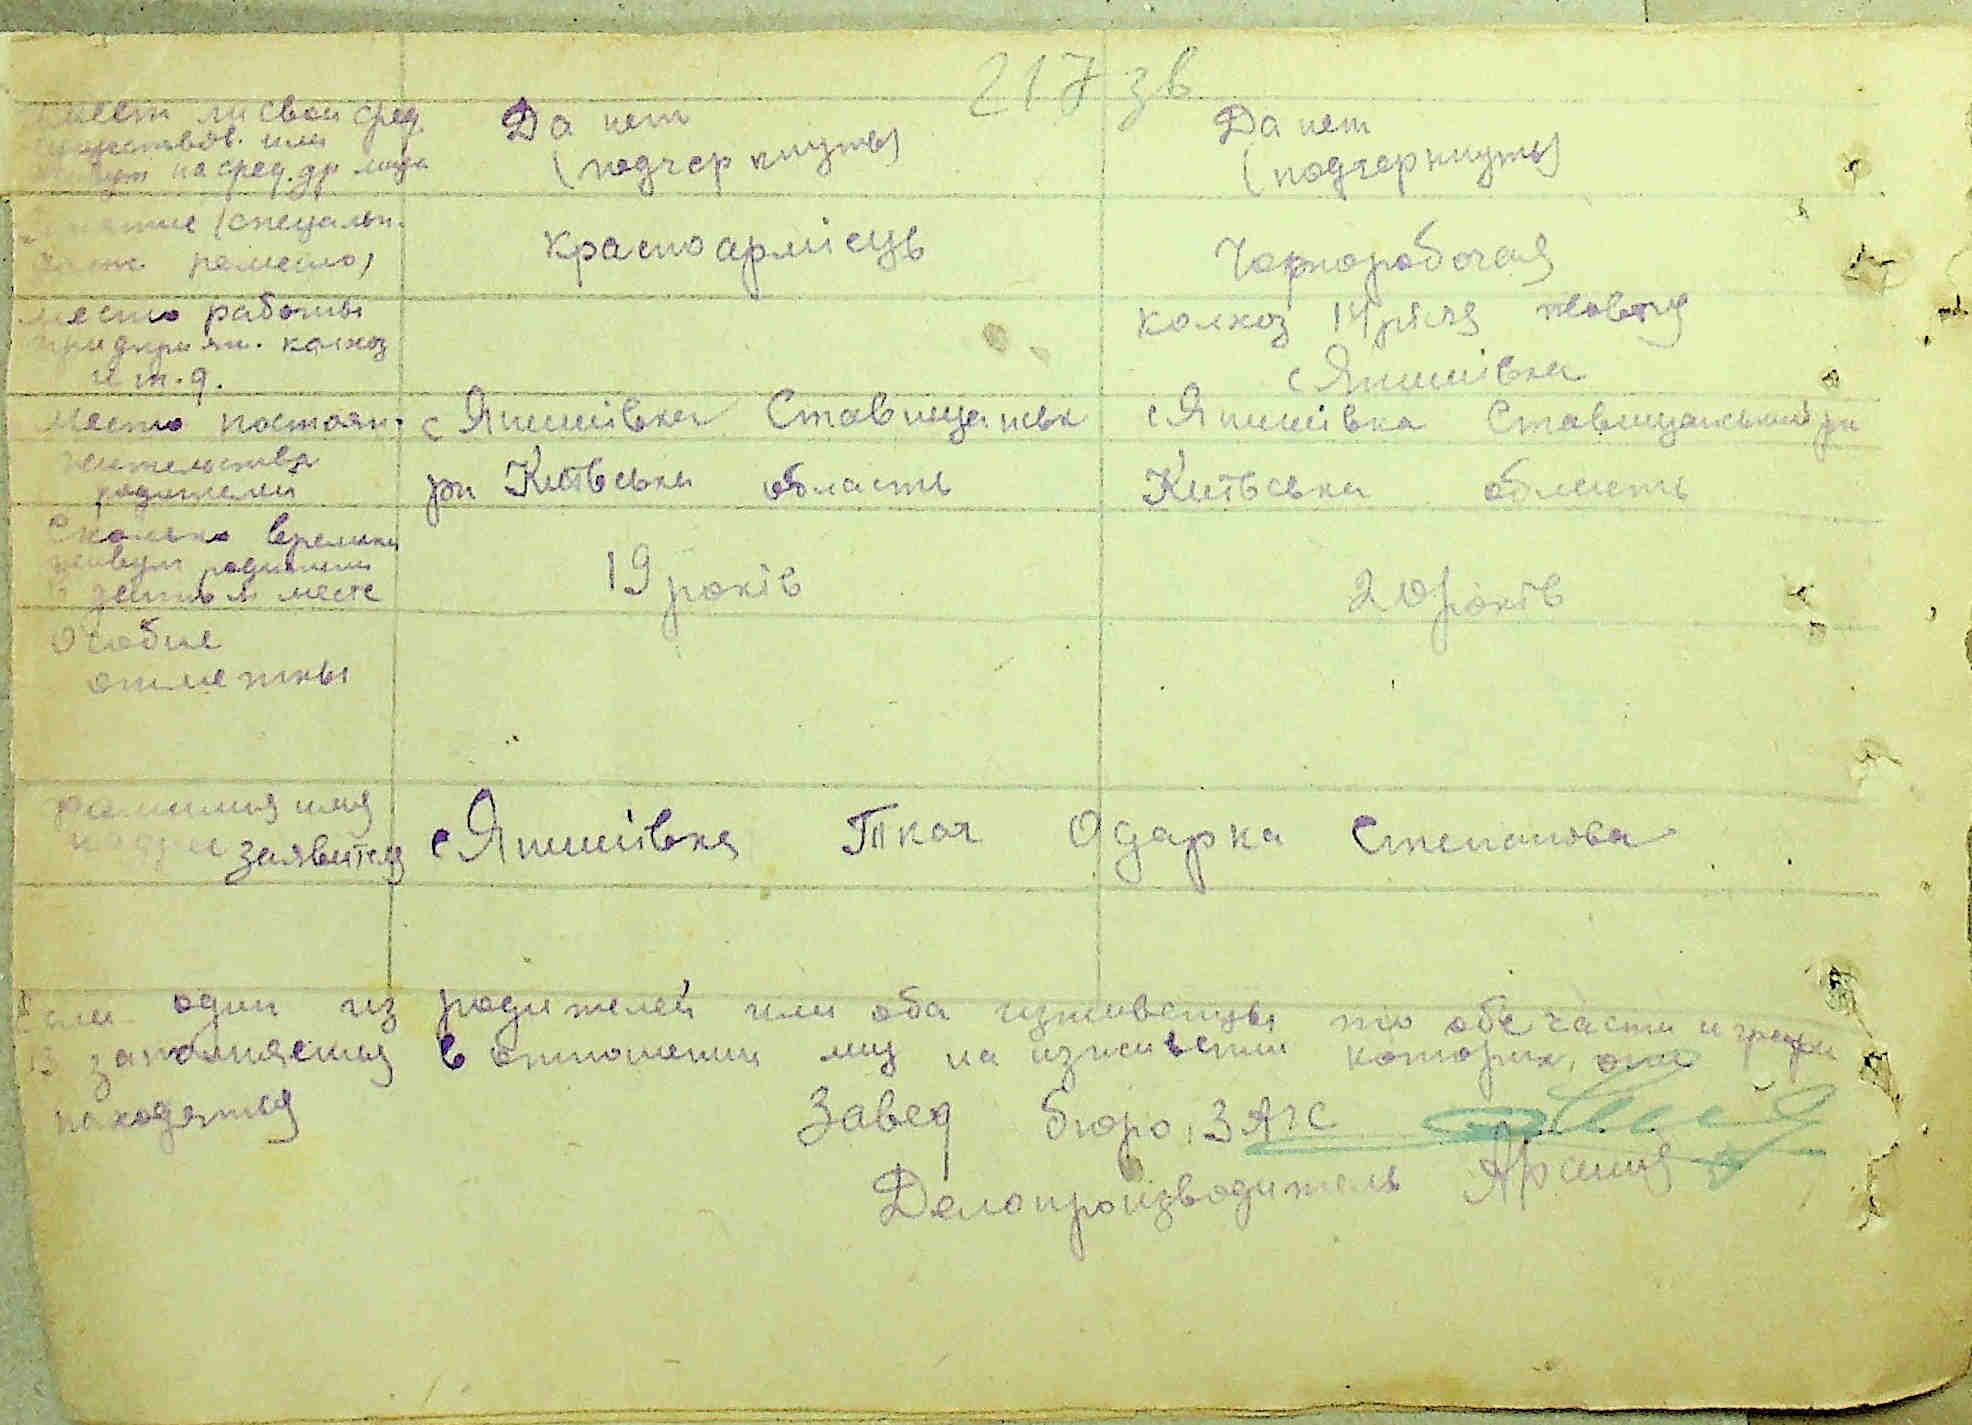 217 зв
имеет ли свои сред.
существов. или
живут на сред. др лица
Да нет
(подчеркнуть)
Да нет
(подчеркнуть)
Занятие (специальн.
ремесло)
красноармієць
Чорноробочая
Место работы
предприят. колхоз
и т.д.
колхоз 14 річя жовтня
с Янишівка
Место постоян.
жительства
родителей
с Янишівка Ставищанськ
рн Київська область
с Янишівка Ставищанський рн
Київська область
Сколько времени
живут родители
в данном месте
19 років
20 років
Особые
отметки
Фамилия имя
заявителя
с Янишівка Ткач Одарка Степанова
Если один из родителей или оба иждивенцы то обе части и графи
13 заполняется в отношении лиц на иждивении которих они
находятся
Завед бюро ЗАГС
Делопроизводитель